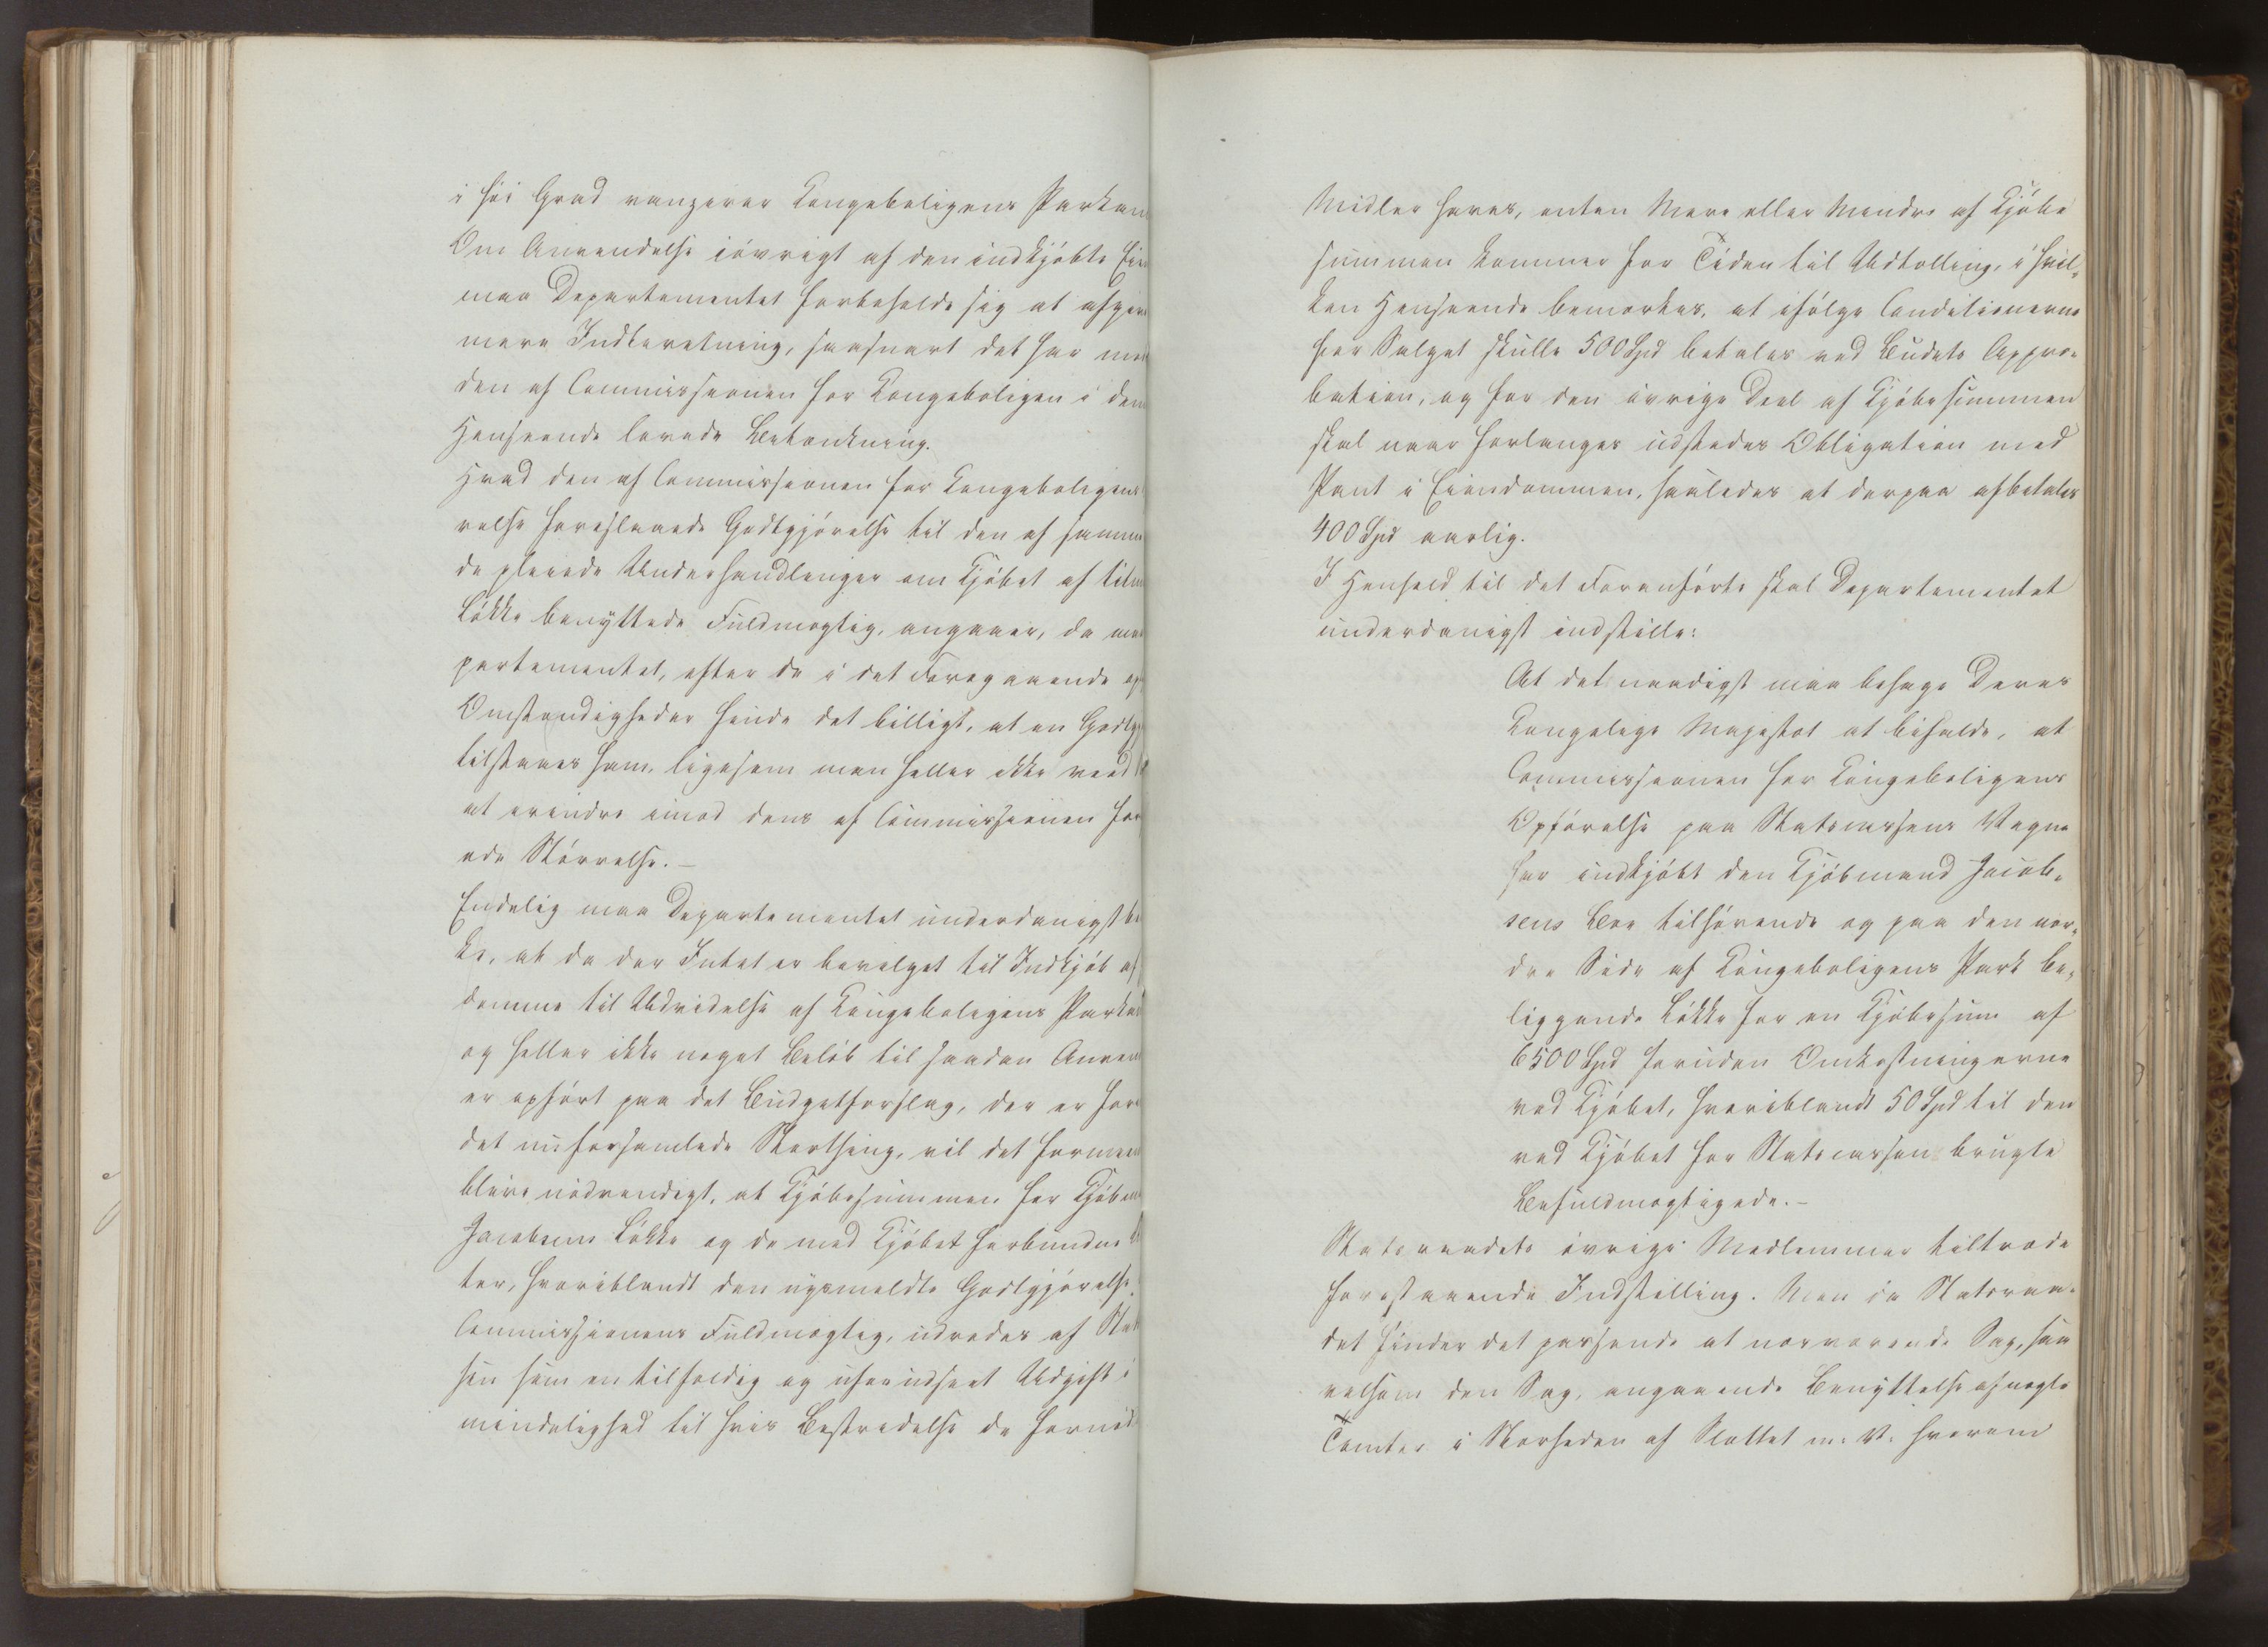 i høi Grad vanzirer Kongeboligens Parkan
Om Anvendelse iøvrigt af den indkjøbte Eien
maa Departementet forbeholde sig at afgive
mere Indberetning, saasnart det har mod
den af Commissionen for Kongeboligen i den
Henseende lovede Betænkning.
Hvad den af Commissionen for Kongeboligens
relse foreslaaede Godtgjørelse til den af samme
de pleiede Underhandlinger om Kjøbet af
Løkke benyttede Fuldmægtig, angaaer, da maa
partementet, efter de i det Foregaaende op
Omstændigheder finde det billigt, at en Godtgj
tilstaaes ham, ligesom man heller ikke veed
at erindre imod dens af Commissionen for
ede Størrelse.—
Endelig maa Departementet underdanigst be
ke, at da der Intet er bevilget til Indkjøb af
domme til Udvidelse af Kongeboligens Parkan
og heller ikke noget Beløb til saadan Anven
er opført paa det Budgetforslag, der er fore
det nu forsamlede Storthing, vil det formeent
blive nødvendigt, at Kjøbesummen for Kjøbm
Jacobsens Løkke og de med Kjøbet forbundne
ter, hvoriblandt den nysmeldte Godtgjørelse
Commissionens Fuldmægtig, udredes af Stat
sen som en tilfældig og uforudseet Udgift i
mindelighed til hvis Bestridelse de fornød
Midler haves, enten Mere eller Mindre af Kjøbe
summen kommer for Tiden til Udtælling, i hvil-
ken Henseende bemærkes, at ifølge Conditionerne
for Salget skulle 500 Spd betales ved Budets Appro-
bation, og for den øvrige Deel af Kjøbesummen
skal naar forlanges udstedes Obligation med
Pant i Eiendommen, saaledes at derpaa afbetales
400 Spd aarlig.
I Henhold til det Foranførte skal Departementet
underdanigst indstille:
At det naadigst maa behage Deres
Kongelige Majestæt at bifalde, at
Commissionen for Kongeboligens
Opførelse paa Statscassens Vegne
har indkjøbt den Kjøbmand Jacob-
sens Boe tilhørende og paa den nor-
dre Side af Kongeboligens Park be-
liggende Løkke for en Kjøbesum af
6500 Spd foruden Omkostningerne
ved Kjøbet, hvoriblandt 50 Spd til den
ved Kjøbet for Statscassen brugte
Befuldmægtigede.—
Statsraadets øvrige Medlemmer tiltræde
forestaaende Indstilling. Men da Statsraa-
det finder det passende at nærværende Sag, saa
velsom den Sag, angaaende Benyttelse af nogle
Tomter i Nærheden af Slottet m: V: hvorom